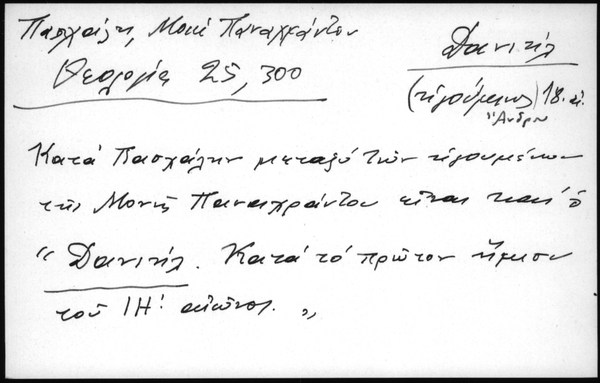 Πασχάλη, Μονή Παναχράντου
Θεολογία 25, 300
Δανιήλ
(ηγούμενος) 18. αι.
"Άνδρου
Κατά Πασχάλην μεταξύ των ηγουμένων
της Μονής Παναχράντου είναι και ὁ
"Δανιήλ. Κατά τό πρῶτον ἥμισυ
τοῦ ΙΗ' αἰῶνος. "